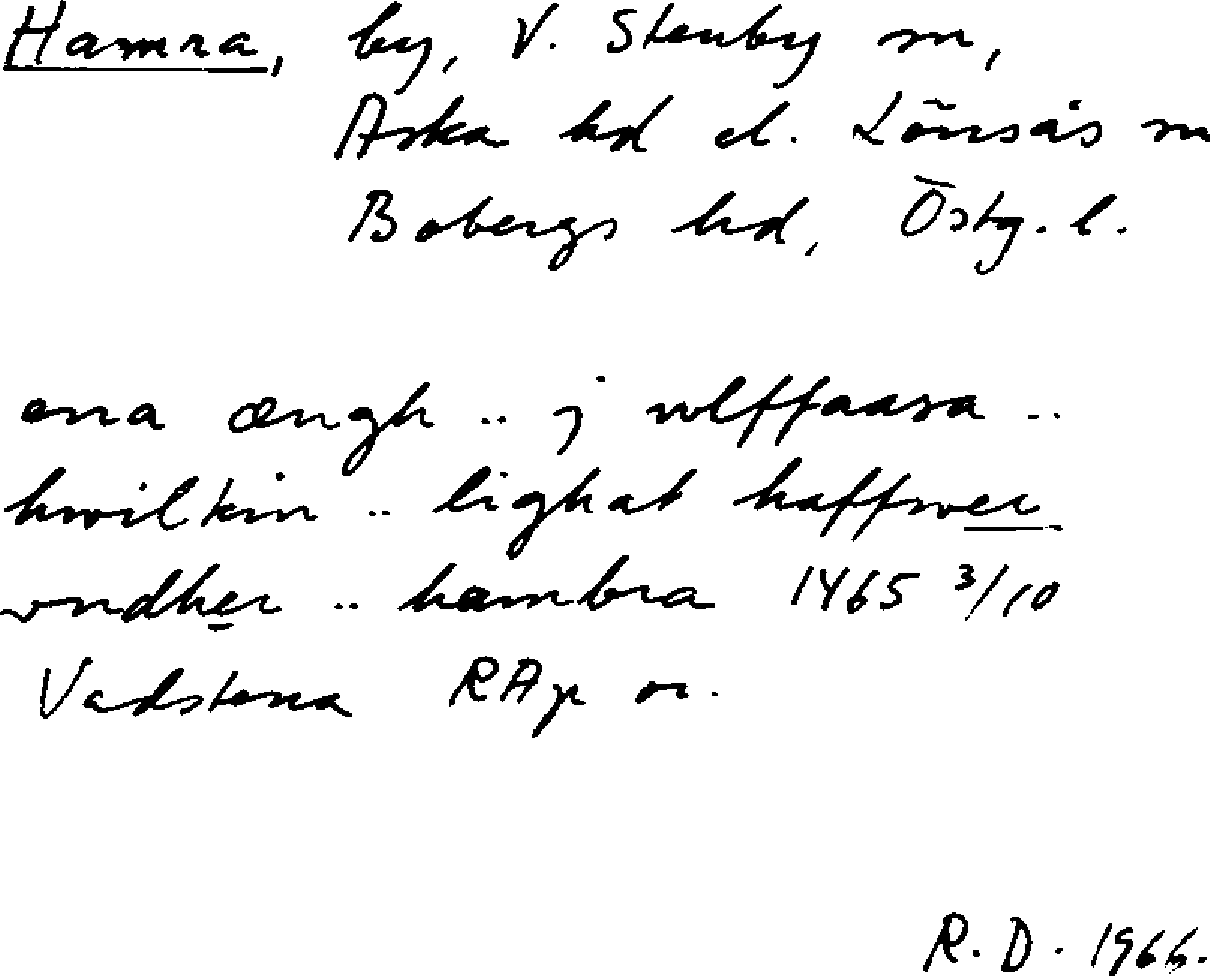 Hamra, by, V. Stenby sn,
Aska hd el. Lönsås sn
Bobergs hd, Östg. l.
ena ængh .. j wlffaasa ..
hwilkin .. lighat haffwer
vndher .. hambra 1465 3/10
Vadstena RAp or.
R. D. 1966.